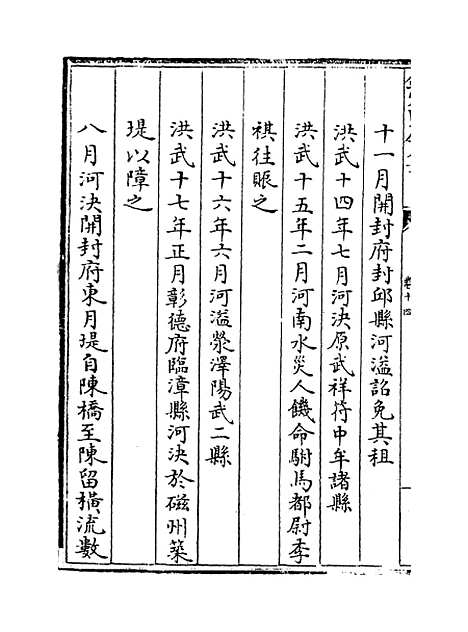 十一月開封府封邱縣河溢詔免其租
洪武十四年七月河決原武祥符中牟諸縣
洪武十五年二月河南水災人饑命駙馬都尉李
祺往賑之
洪武十六年六月河溢滎澤陽武二縣
洪武十七年正月彰德府臨漳縣河決於磁州築
堤以障之
八月河決開封府東月堤自陳橋至陳留橫流數
卷十四